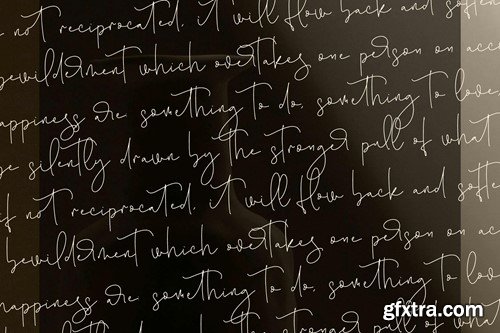 not reciprocated, it will flow back and soften
bewilderment which overtakes one person on acc
happiness are something to do, something to love
be silently drawn by the stronger pull of what
if not reciprocated, it will flow back and softe
bewilderment which overtakes one person on acc
happiness are something to do, something to lov
silently drawn by the stronger pull of wha
gfxtra.com